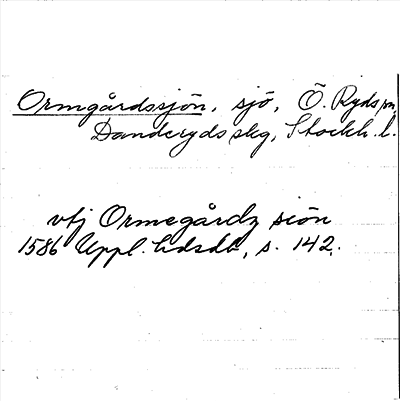 Ormgårdssjön, sjö, Ö. Ryds sn,
Danderyds skg, Stockh. l.
vtj Ormegårdz siön
1586 Uppl. lidsdb, s. 142.